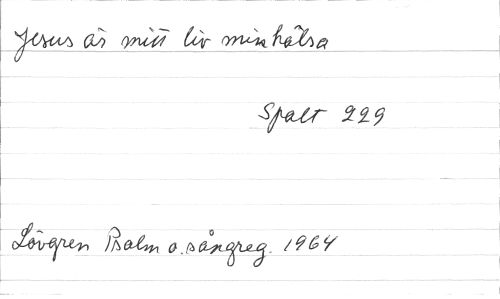 Jesus är mitt liv min hälsa
Spalt 229
Lövgren Psalm o. sångreg. 1964